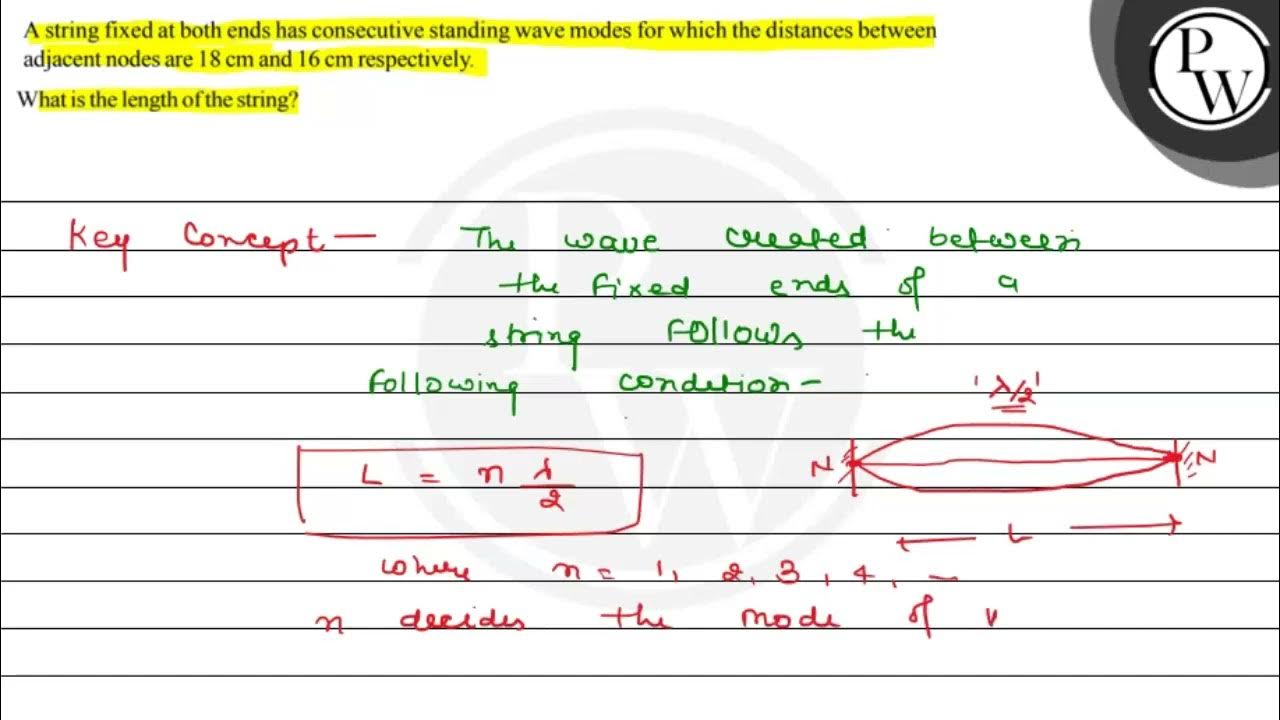 A string fixed at both ends has consecutive standing wave modes for which the distances between
adjacent nodes are 18 cm and 16 cm respectively.
What is the length of the string?
P
W
Key Concept — The wave created between
the fixed ends of a
string follows the
following condition –
'λ/2'
L = n λ/2
N N
L
where n = 1, 2, 3, 4, —
n decides the mode of v